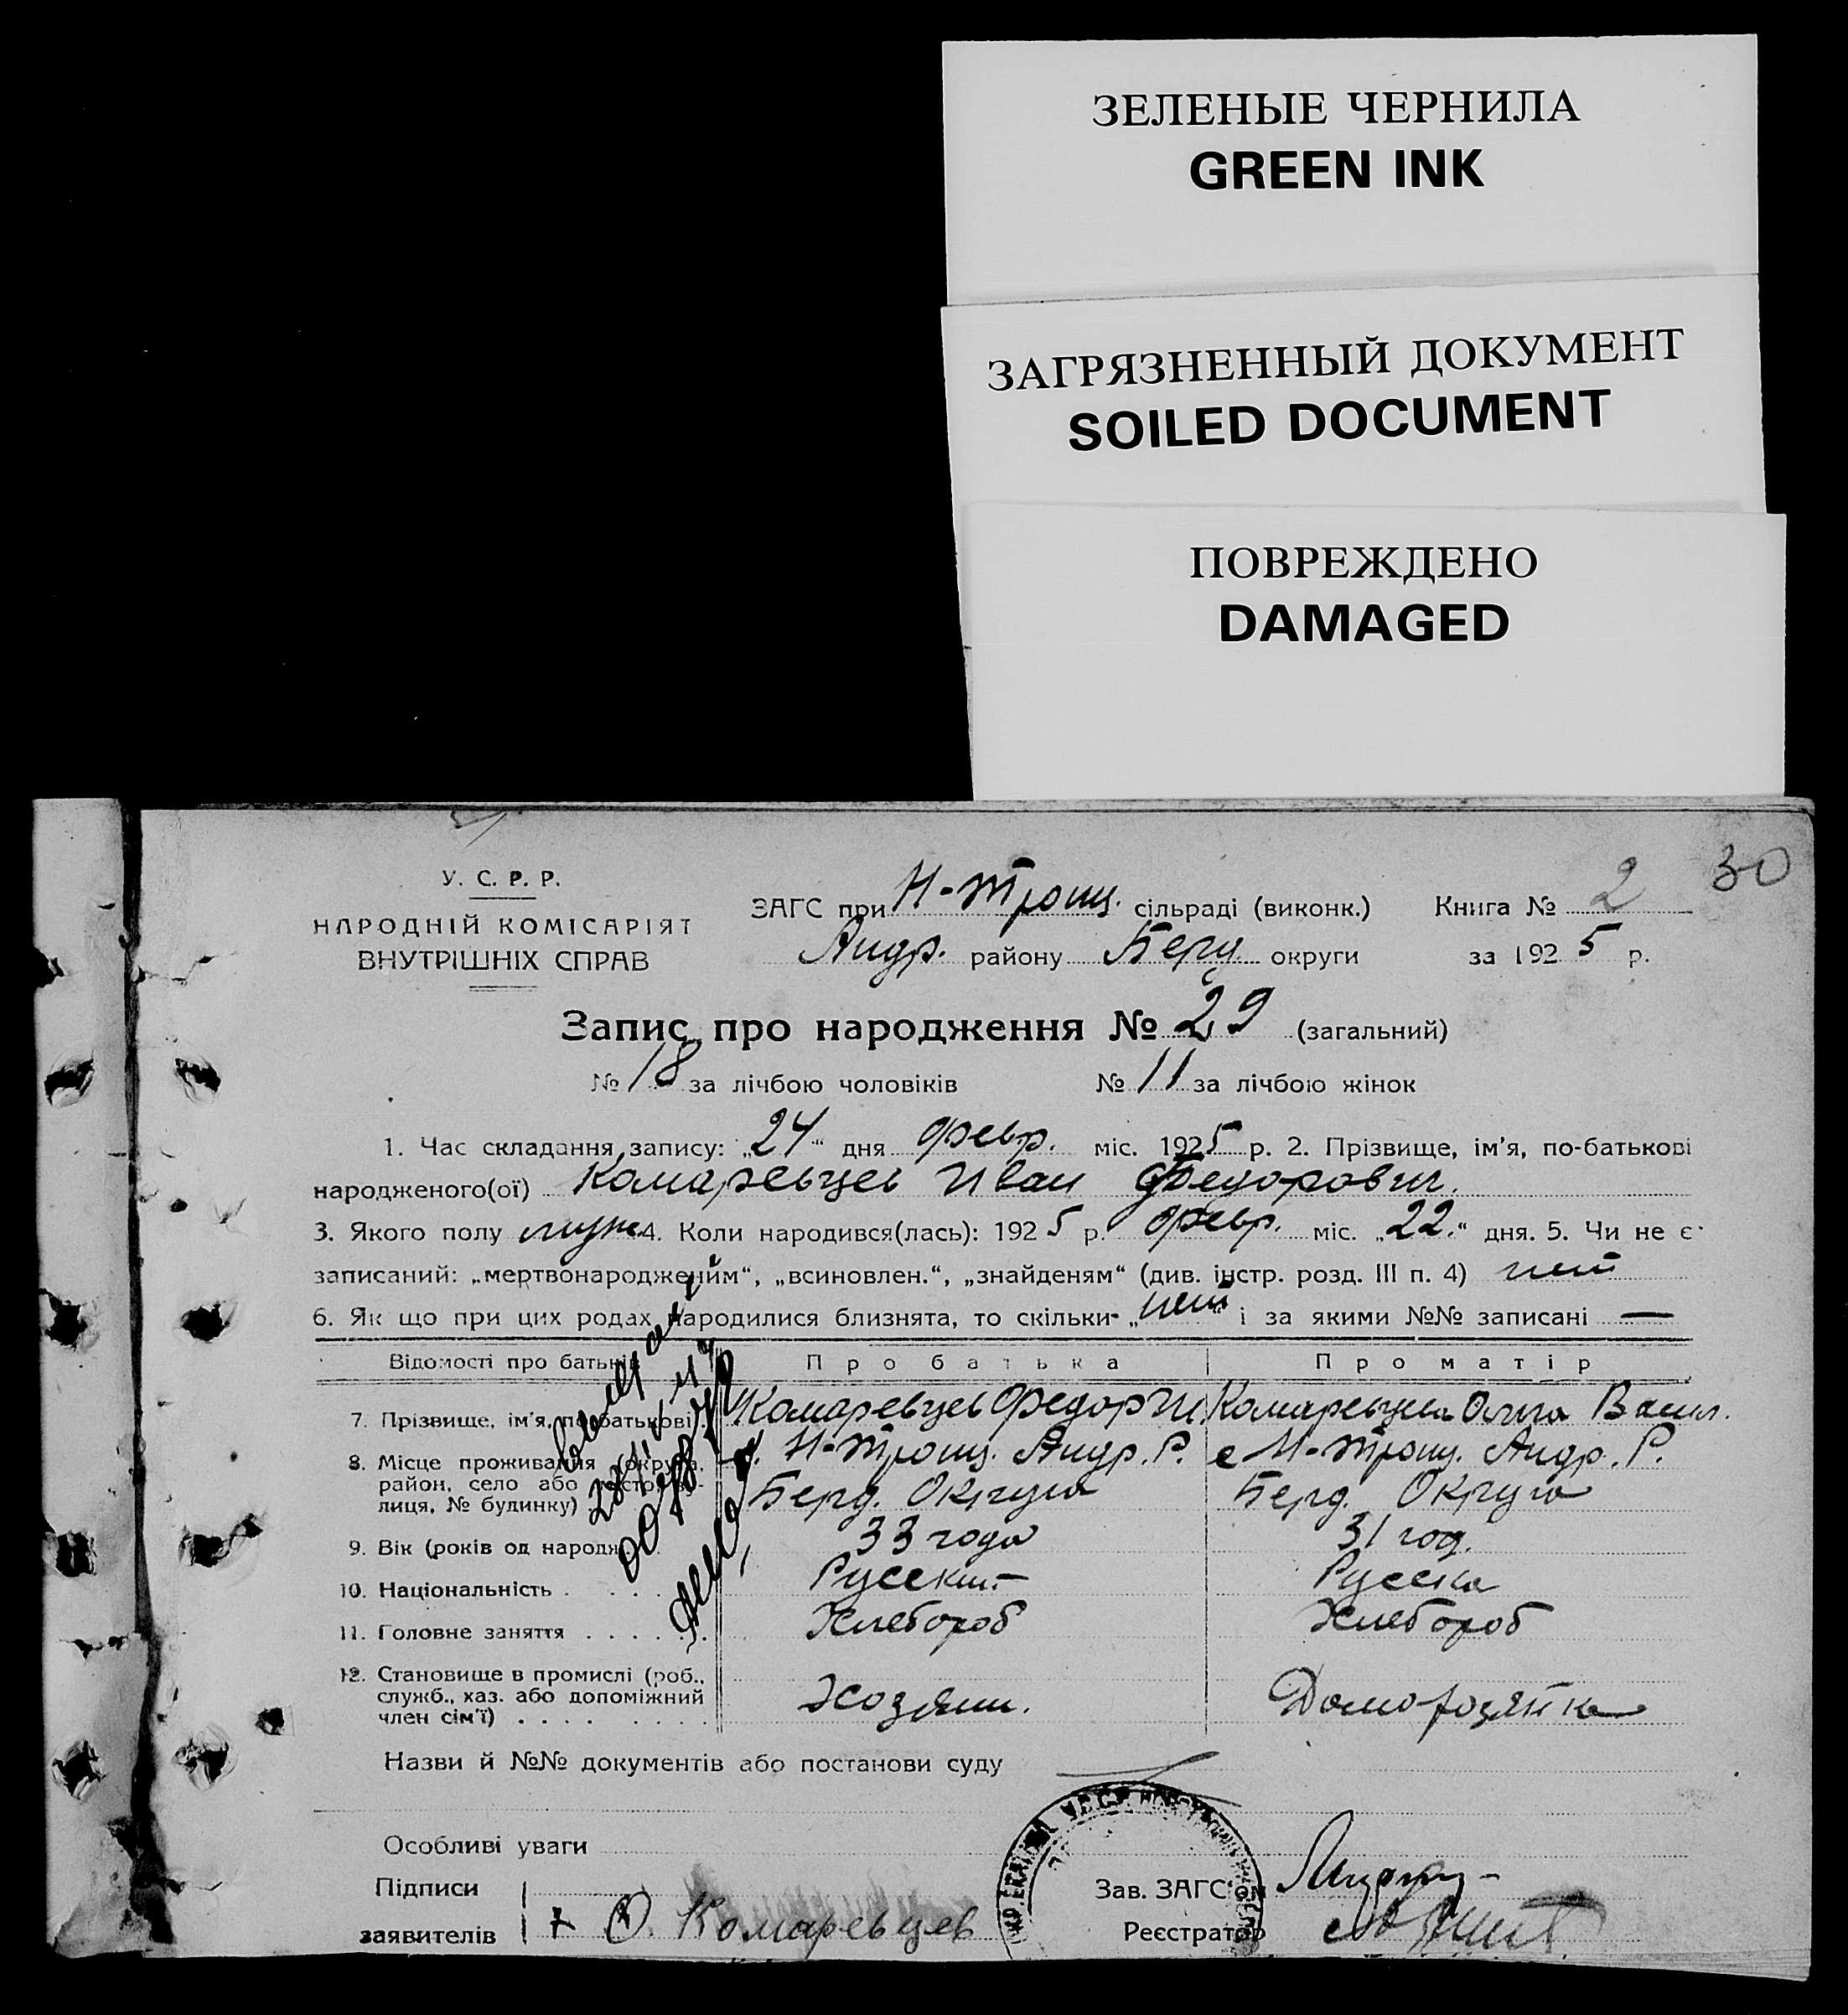 ЗЕЛЕНЫЕ ЧЕРНИЛА
GREEN INK
ЗАГРЯЗНЕННЫЙ ДОКУМЕНТ
SOILED DOCUMENT
ПОВРЕЖДЕНО
DAMAGED
30
У. С. Р. Р.
НАРОДНІЙ КОМІСАРІЯТ
ВНУТРІШНІХ СПРАВ
ЗАГС при Н-Троиц. сільраді (виконк.) Книга № 2
Андр. району Берд. округи за 1925 р.
Запис про народження № 29 (загальний)
№ 18 за лічбою чоловіків № 11 за лічбою жінок
1. Час складання запису: „24" дня февр. міс. 1925 р. 2. Прізвище, ім'я, по-батькові
народженого(ої) Комаревцев Иван Федорович.
3. Якого полу муж 4. Коли народився(лась): 1925 р. февр. міс. „22." дня. 5. Чи не є
записаний: „мертвонародженим", „всиновлен.", „знайденям" (див. інстр. розд. III п. 4) нет
6. Як що при цих родах народилися близнята, то скільки „нет" і за якими №№ записані —
Відомості про батьків Про батька Про матір
7. Прізвище, ім'я, по-батькові Комаревцев Федор Ив. Комаревцева Ольга Васил.
8. Місце проживання (округа, с. Н-Троиц. Андр. Р. с Н-Троиц. Андр. Р.
район, село або місто, ву-
лиця, № будинку) Берд. Округа Берд. Округа
9. Вік (років од народж.) 33 года 31 год.
10. Національність Русский Русска
11. Головне заняття Хлебороб Хлебороб
12. Становище в промислі (роб.,
служб., хаз. або допоміжний
член сім'ї) Хозяин. Домохозяйка
Назви й №№ документів або постанови суду
Особливі уваги
Підписи
заявителів Ф. Комаревцев
Зав. ЗАГС'ом
Реєстратор